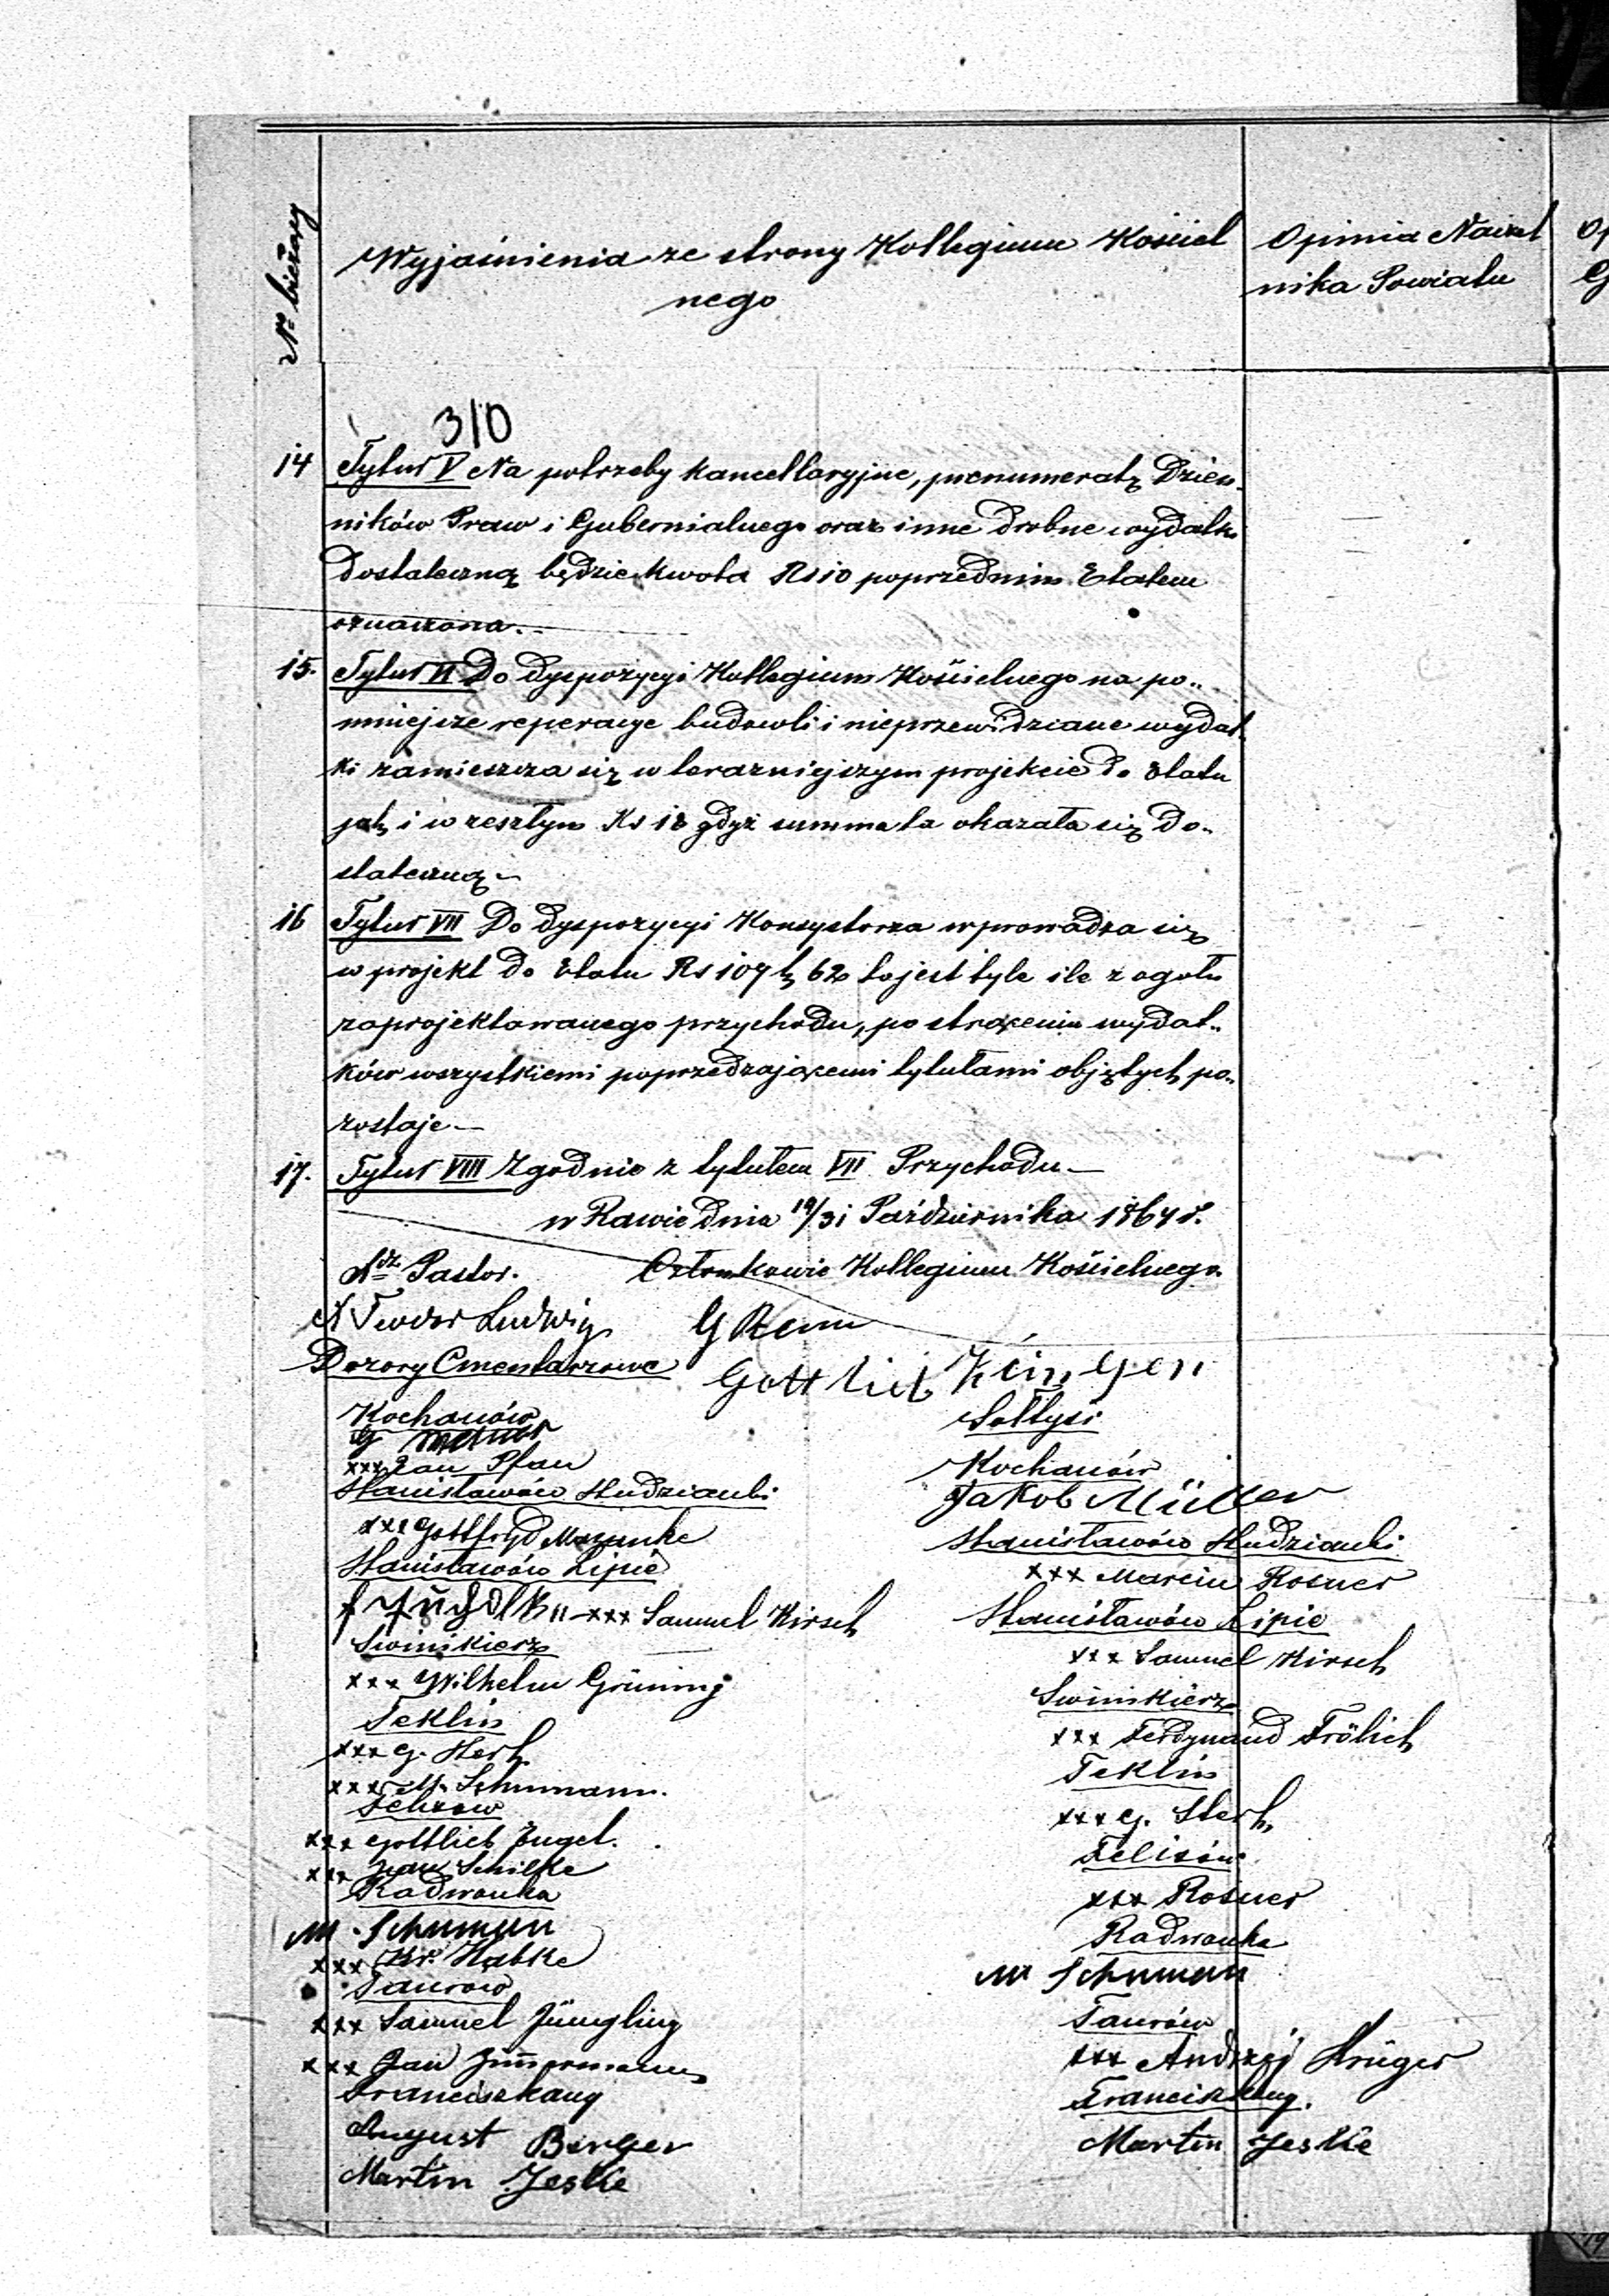 Nº bieżący
Wyjaśnienia ze strony Kollegium Kościel
nego
Opinia Naczel
nika Powiatu
310
14 Tytuł V Na potrzeby kancellaryjne, prenumeratę Dzien-
ników Praw i Gubernialnego oraz inne drobne wydatki
dostateczną będzie kwota Rs 10 poprzednim Etatem
oznaczona.
15. Tytuł VI Do dyspozycyi Kollegium Kościelnego na po-
mniejsze reperacye budowli i nieprzewidziane wydat-
ki zamieszcza się w terazniejszym projekcie do Etatu
jak i w zeszłym Rs 18 gdyż summa ta okazała się do-
stateczną
16 Tytuł VII Do dyspozycyi Konsystorza wprowadza się
w projekt do Etatu Rs 107 k 62 to jest tyle ile z ogołu
zaprojektowanego przychodu, po strąceniu wydat-
ków wszystkiemi poprzedzającemi tytułami objętych po-
zostaje.
17. Tytuł VIII Zgodnie z tytułem VII Przychodu
w Rawie dnia 19/31 Października 1864 r.
Pastor. Członkowie Kollegium Kościelnego.
Teodor Ludwig G Renn
Dozory Cmentarzowe Gottlieb
Kochanów Sołtysi
G
xxx Jan Pfau Kochanów
Stanisławów Studzianki Jakob Müller
xxx Gottfryd Stanisławów Studzianki
Stanisławów Lipie xxx Marcin Rosner
xxx Samuel Hirsch Stanisławów Lipie
Swinikierz xxx Samuel Hirsch
xxx Wilhelm Grüning Swinikierz
Teklin xxx Ferdynand Frölich
xxx G. Sterk Teklin
xxx M. Schumann. xxx G. Sterk
xxx Gottlieb Engel. Felixów
xxx Jan Schilke xxx Rosner
Radwanka Radwanka
M. Schuman M Schuman
xxx Kr. Habke
Taurow Taurów
xxx Samuel Jüngling xxx Andrzej Krüger
xxx Jan Zimmermann
Franciszkany Franciszkany.
August Berger Martin Jeske
Martin Jeske